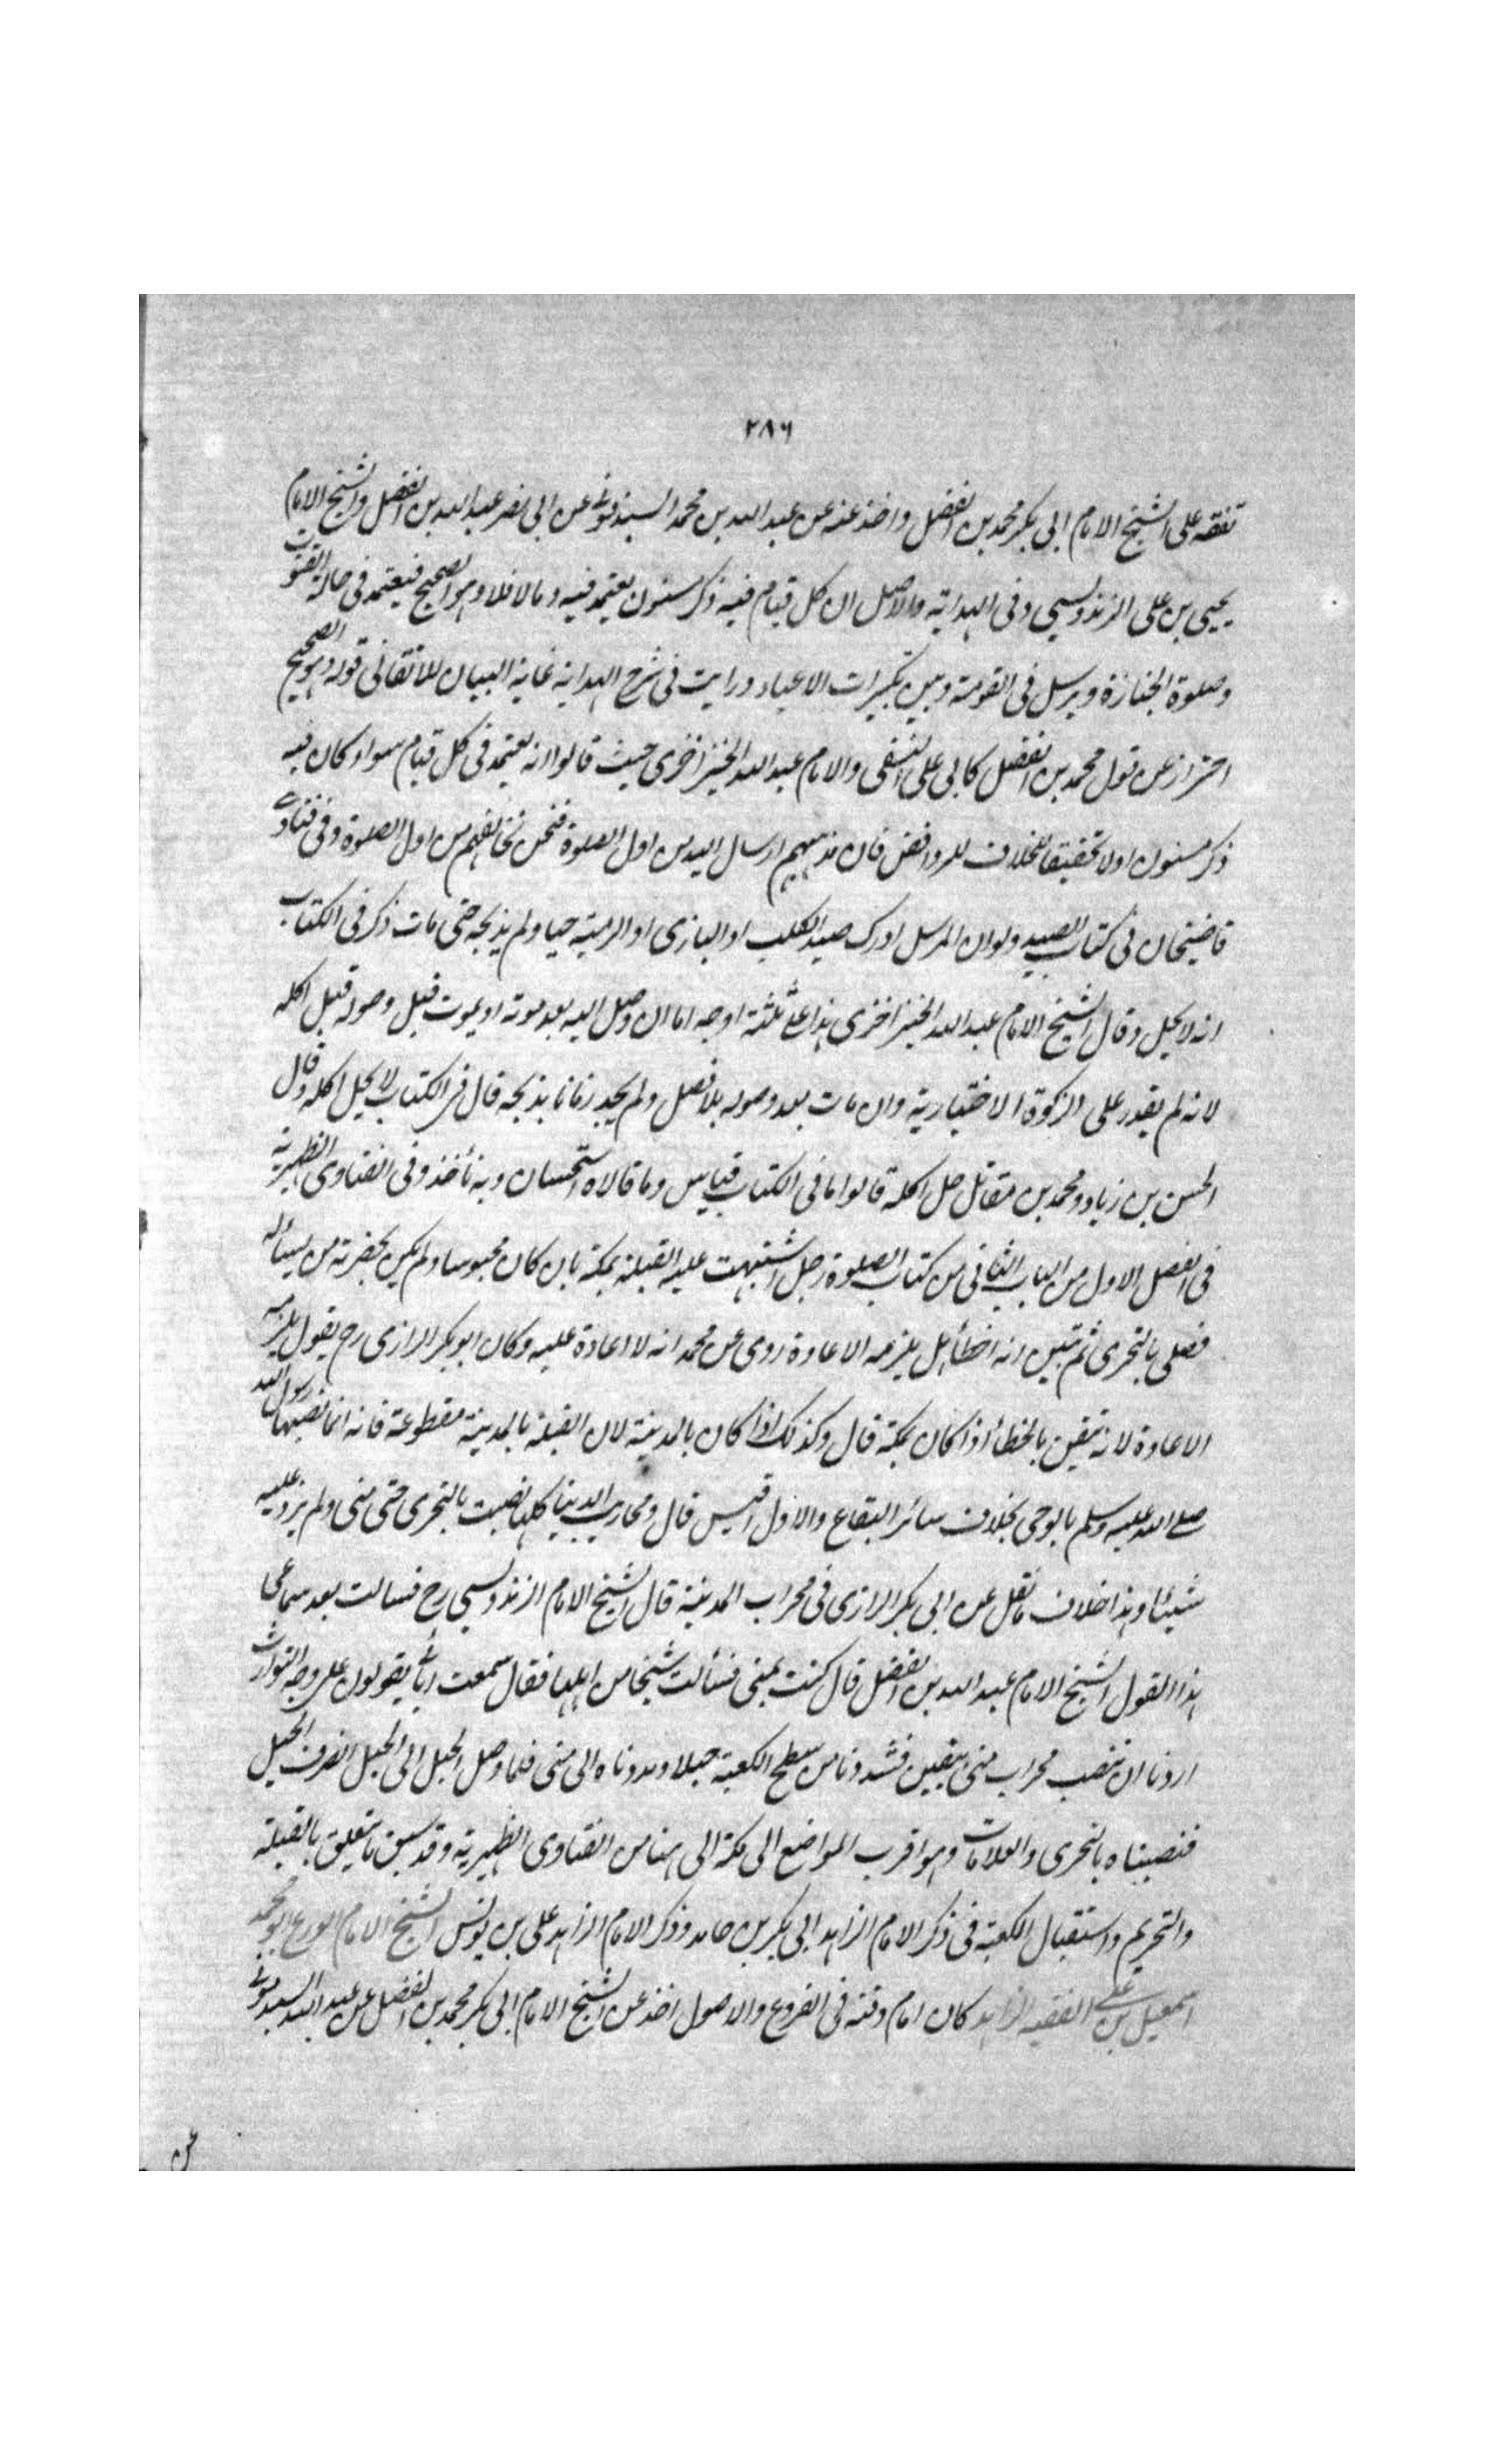 ٢٨٦
تفقه على الشيخ الامام ابى بكر محمد بن الفضل واخذ عنه عن عبد الله بن محمد السبذمونى عن ابى نصر عبد الله بن الفضل والشيخ الامام
يحيى بن على الزندويسى وفى الهداية والاصل ان كل قيام فيه ذكر مسنون يعتمد فيه وما لا فلا وهو الصحيح فيعتمد فى حالة القنوت
وصلوة الجنازة ويرسل فى القومة وبين تكبيرات الاعياد ورايت فى شرح الهداية غاية البيان للاتقانى قوله وهو الصحيح
احتراز عن قول محمد بن الفضل كابى على النسفى والامام عبد الله الخيزاخزى حيث قالوا انه يعتمد فى كل قيام سواء كان فيه
ذكر مسنون اولا تحقيقا للخلاف للروافض فان مذهبهم ارسال اليد من اول الصلوة فنحن نخالفهم من اول الصلوة وفى فتاوى
قاضيخان فى كتاب الصيد ولو ان المرسل ادرك صيد الكلب او البازى او الرمية حيا ولم يذبحه حتى مات ذكر فى الكتاب
انه لا يحل وقال الشيخ الامام عبد الله الخيزاخزى هذا على ثلثة اوجه اما ان وصل اليه بعد موته او يموت قبل وصوله قبل اكله
لانه لم يقدر على الزكوة الاختيارية وان مات بعد وصوله بلا فصل ولم يجد زمانا يذبحه قال فى الكتاب لا يحل اكله وقال
الحسن بن زياد ومحمد بن مقاتل حل اكله قالوا ما فى الكتاب قياس وما قالاه استحسان وبه نأخذ وفى الفتاوى الظهيرية
فى الفصل الاول من الباب الثانى من كتاب الصلوة رجل اشتبهت عليه القبلة بمكة بان كان محبوسا ولم يكن بحضرته من يسأله
فصلى بالتحرى ثم تبين انه اخطأ هل يلزمه الاعادة روى عن محمد انه لا اعادة عليه وكان ابو بكر الرازى رح يقول يلزمه
الاعادة لانه تيقن بالخطأ اذا كان بمكة قال وكذلك اذا كان بالمدينة لان القبلة بالمدينة مقطوعة فانه انما نصبها رسول الله
صلى الله عليه وسلم بالوحى بخلاف سائر البقاع والاول اقيس قال ومحاريب الدنيا كلها نصبت بالتحرى حتى منى ولم يزد عليه
شيئا وهذا خلاف ما نقل عن ابى بكر الرازى فى محراب المدينة قال الشيخ الامام الزندويسى رح فسالت بعد سماعى
هذا القول الشيخ الامام عبد الله بن الفضل قال كنت بمنى فسألت شيخا من اهلها فقال سمعت ابائى يقولون على وجه التوارث
اردنا ان ننصب محراب منى بيقين فشددنا من سطح الكعبة حبلا ومددناه الى منى فلما وصل الحبل الى الجبل انصرف الحبل
فنصبناه بالتحرى والعلامات وهو اقرب المواضع الى مكة الى هنا من الفتاوى الظهيرية وقد سبق ما يتعلق بالقبلة
والتحريم واستقبال الكعبة فى ذكر الامام الزاهد ابى بكر بن حامد وذكر الامام الزاهد على بن يونس الشيخ الامام الورع ابو محمد
اسمعيل بن على الفقيه الزاهد كان امام وقته فى الفروع والاصول اخذ عن الشيخ الامام ابى بكر محمد بن الفضل عن عبد الله السبذمونى
عن